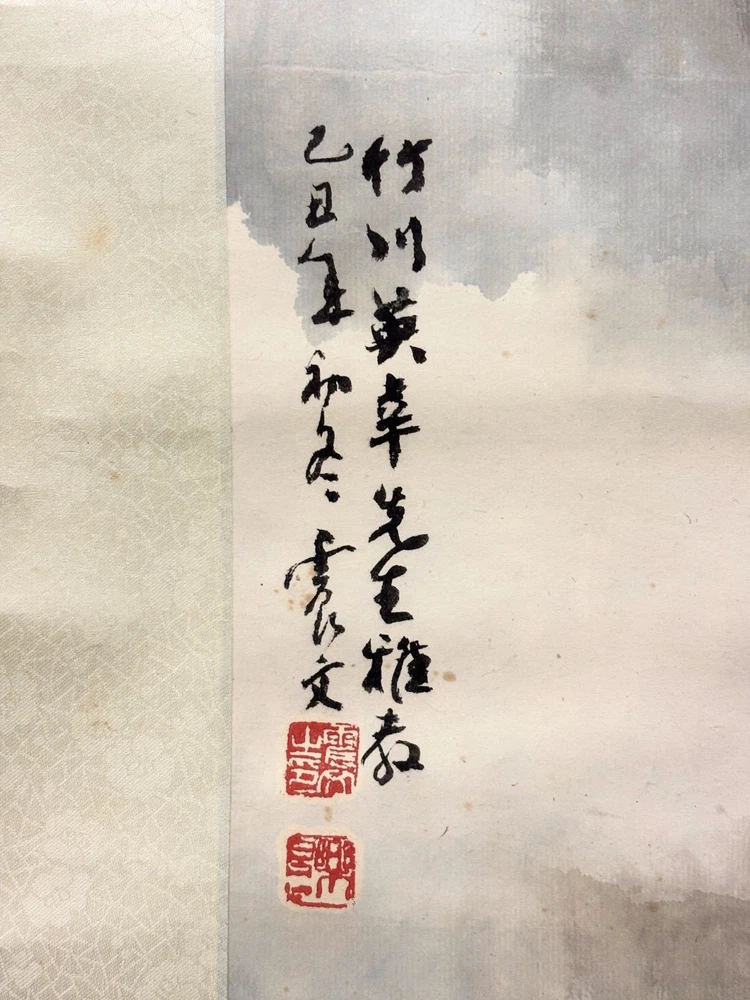 竹川英幸先生雅教
己丑年初冬震文